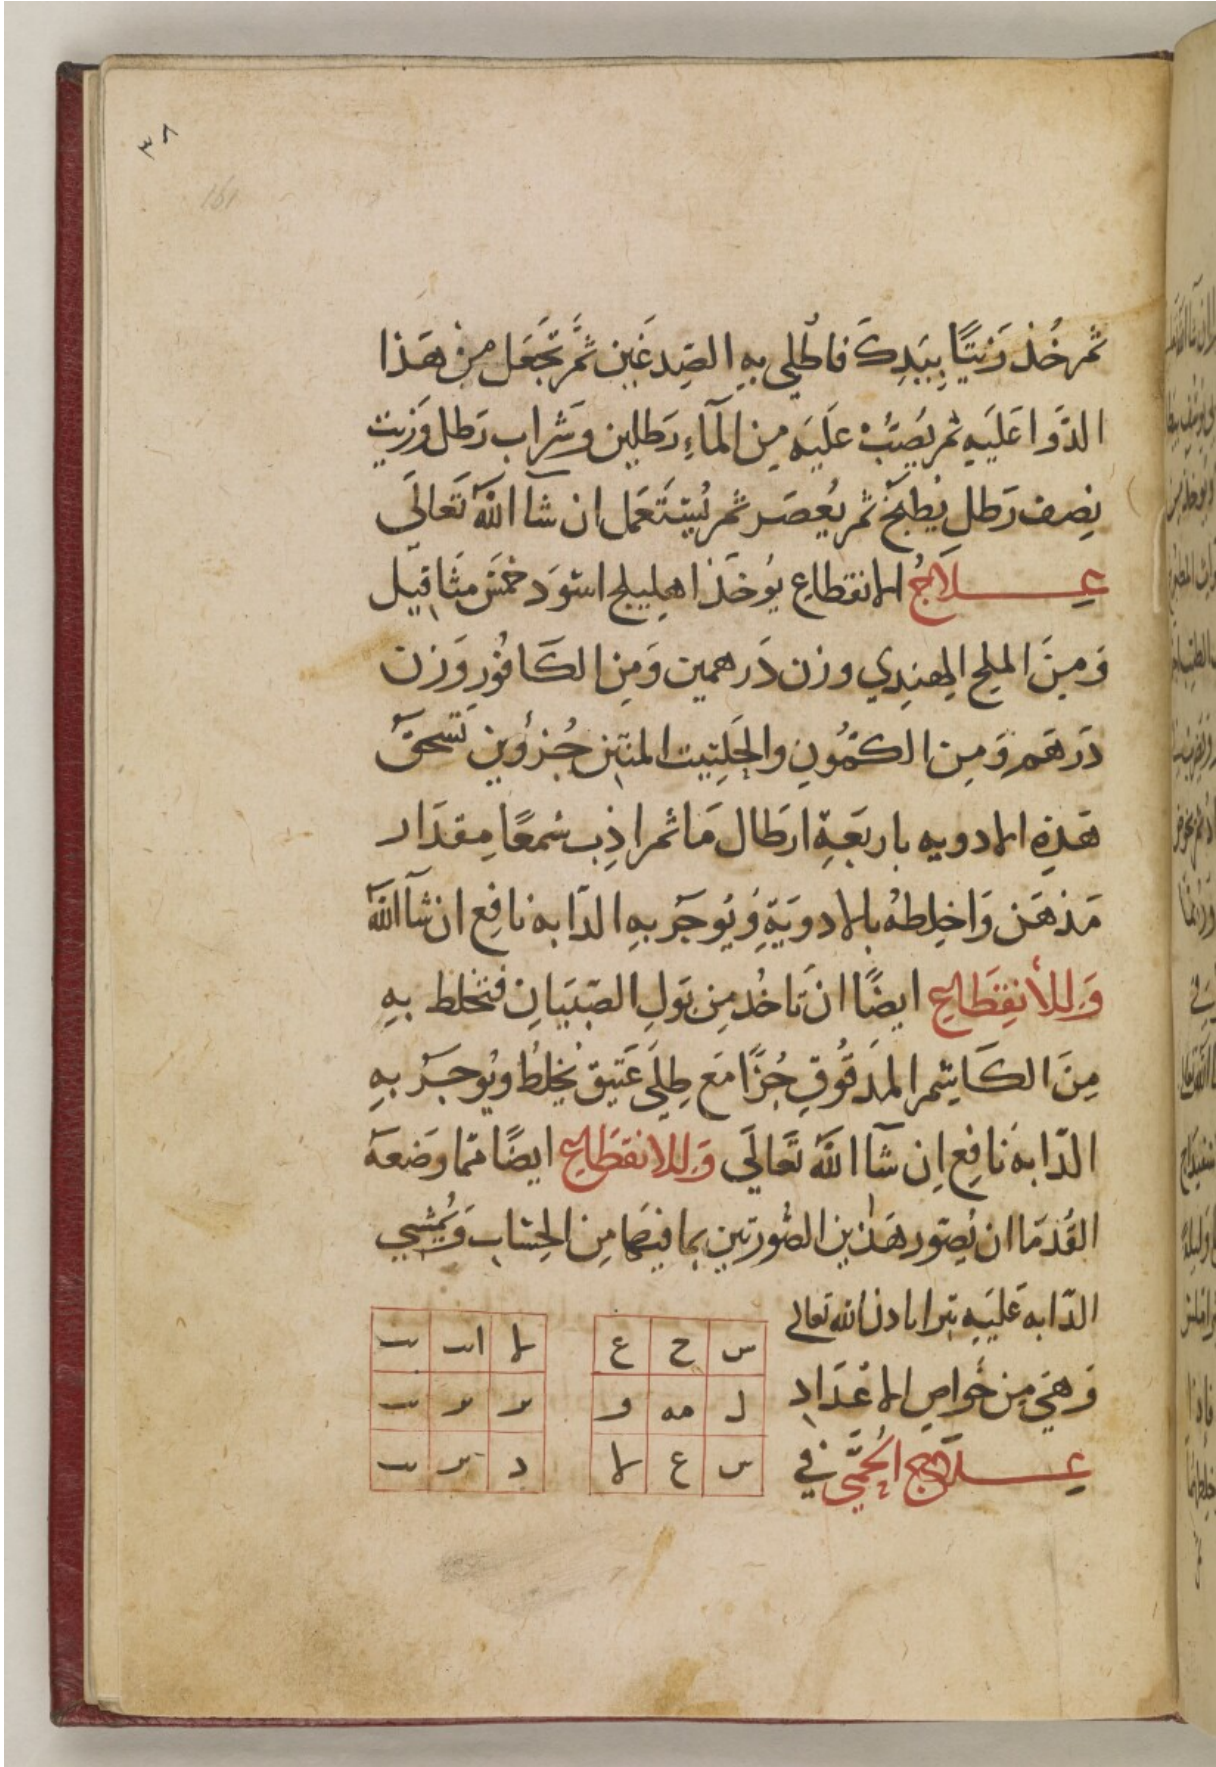 ٣٨
161
ثم خُذ زَيتًا بِيَدِكَ فاطلي بهِ الصِدغَين ثمَّ تجَعَل مِنْ هَذا
الدَّوا عَليَهِ ثم يَصَبُّ عَليَه مِن المآءِ رَطلين وَشَراب رَطل وَزيت
نِصف رَطل يُطبَخ ثم يُعصَر ثم يُستَعمَل ان شآ اللهُ تَعَالَى
عِلاجُ الانقطاع يُوخَذ اهليلج اسوَد خمَسَ مثَاقيَل
وَمِنَ الملح الهندِي وزن دَرهمين وَمِن الكَافوُر وَزن
دَرهَم وَمِن الكمُّونِ والحِلتِيت المنتِن جُزؤين تسَحَق
هَذِهِ الادويه باربَعَةِ ارطَال مَا ثم اذِب شمعًا مِقدَار
وَاخلِطهُ بالادويَةِ وَيُوجَر بهِ الدّابه نافِع ان شآ اللهُ
وَللأنقِطَاعِ ايضًا ان تَاخُذ مِن بَولِ الصّبيَانِ فتخلط بهِ
مِنَ الكَاشم المدَقُوقِ جُزًا مَع طِلَى عَتيق يُخلطُ ويُوجَرُ بهِ
الدّابة نافِع اِن شآ اللهُ تَعَالَى وَللانقطَاعِ ايضًا ممّا وَضعَهُ
القُدَمَا ان يُصَوّر هَذين الصُّورتَين بما فيهَا مِن الحِسَاب وَيُمشي
الدّابه عَليَهِ تبرا باذن الله تعالى
وَهيَ مِن خَواصِ الاعْدَادِ
عِلاج الحُمّي في
س ح ع
د مه و
س ع لا